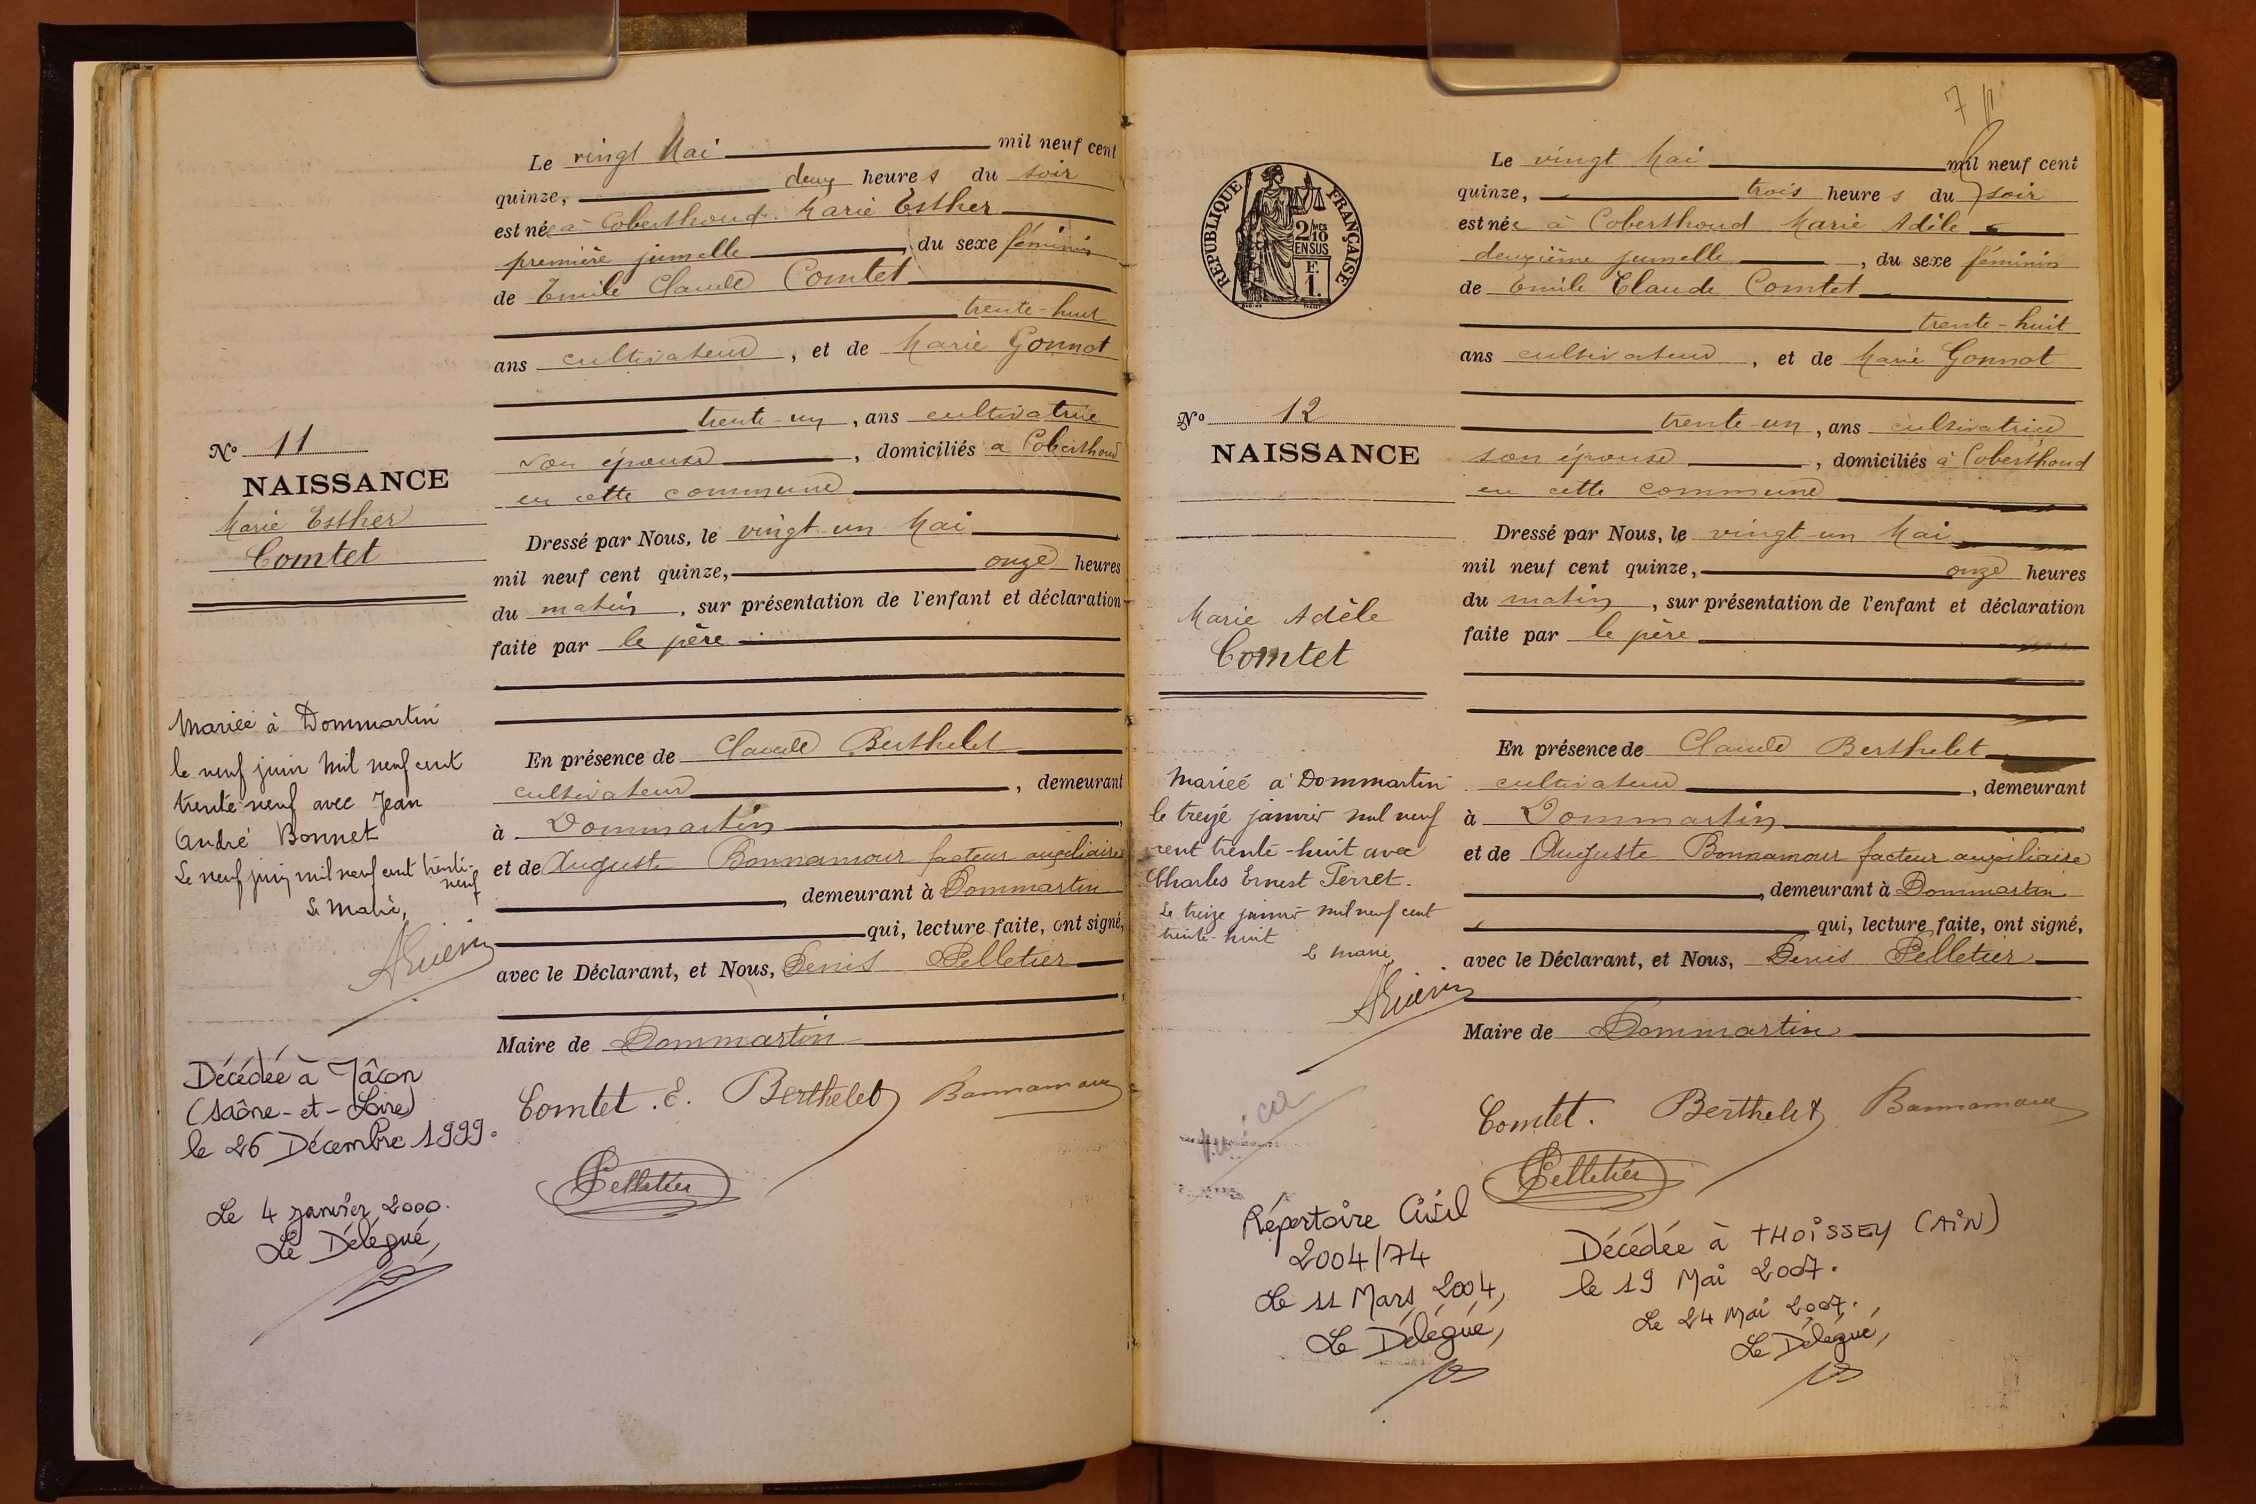 Le vingt Mai mil neuf cent
quinze, deux heures du soir
est née à Coberthoud Marie Esther
première jumelle, du sexe féminin
de Emile Claude Comtet
trente-huit
ans cultivateur, et de Marie Gonnot
trente-un, ans cultivatrice
son épouse, domiciliés à Coberthoud
en cette commune
Dressé par Nous, le vingt-un Mai
mil neuf cent quinze, onze heures
du matin, sur présentation de l'enfant et déclaration
faite par le père
En présence de Claude Berthelet
cultivateur, demeurant
à Dommartin,
et de Auguste Bonnamour facteur auxiliaire
, demeurant à Dommartin
qui, lecture faite, ont signé,
avec le Déclarant, et Nous, Denis Pelletier
Maire de Dommartin
Comtet. E. Berthelet Bonnamour
Pelletier
No 11
NAISSANCE
Marie Esther
Comtet
Mariée à Dommartin
le neuf juin mil neuf cent
trente neuf avec Jean
André Bonnet
Le neuf juin mil neuf cent trente-
neuf
Le Maire,
Décédée à Mâcon
(Saône-et-Loire)
le 26 Décembre 1999.
Le 4 janvier 2000.
Le Délégué,
7
RÉPUBLIQUE FRANÇAISE
2/10MES
EN SUS
F.
1.
Le vingt Mai mil neuf cent
quinze, trois heures du soir
est née à Coberthoud Marie Adèle
deuxième jumelle, du sexe féminin
de Emile Claude Comtet
trente-huit
ans cultivateur, et de Marie Gonnot
trente-un, ans cultivatrice
son épouse, domiciliés à Coberthoud
en cette commune
Dressé par Nous, le vingt-un Mai
mil neuf cent quinze, onze heures
du matin, sur présentation de l'enfant et déclaration
faite par le père
En présence de Claude Berthelet
cultivateur, demeurant
à Dommartin,
et de Auguste Bonnamour facteur auxiliaire
, demeurant à Dommartin
qui, lecture faite, ont signé,
avec le Déclarant, et Nous, Denis Pelletier
Maire de Dommartin
Comtet. Berthelet Bonnamour
Pelletier
No 12
NAISSANCE
Marie Adèle
Comtet
Mariée à Dommartin
le treize janvier mil neuf
cent trente-huit avec
Charles Ernest Perret.
Le treize janvier mil neuf cent
trente-huit
Le maire,
Répertoire Civil
2004/74
Le 11 Mars 2004,
Le Délégué,
Décédée à THOISSEY (AIN)
le 19 Mai 2007.
Le 24 Mai 2007.
Le Délégué,